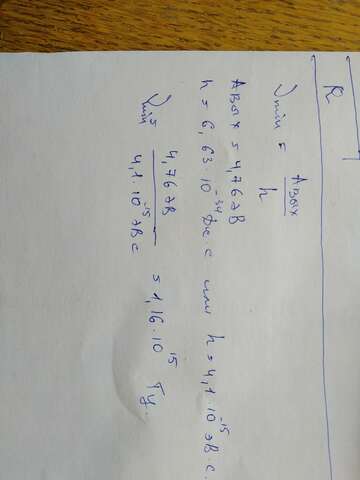 R
νmin = Aвых / h
Aвых = 4,76 эВ
h = 6,63·10⁻³⁴ Дж·с или h = 4,1·10⁻¹⁵ эВ·с.
νmin = 4,76 эВ / 4,1·10⁻¹⁵ эВ с = 1,16·10¹⁵ Гц.